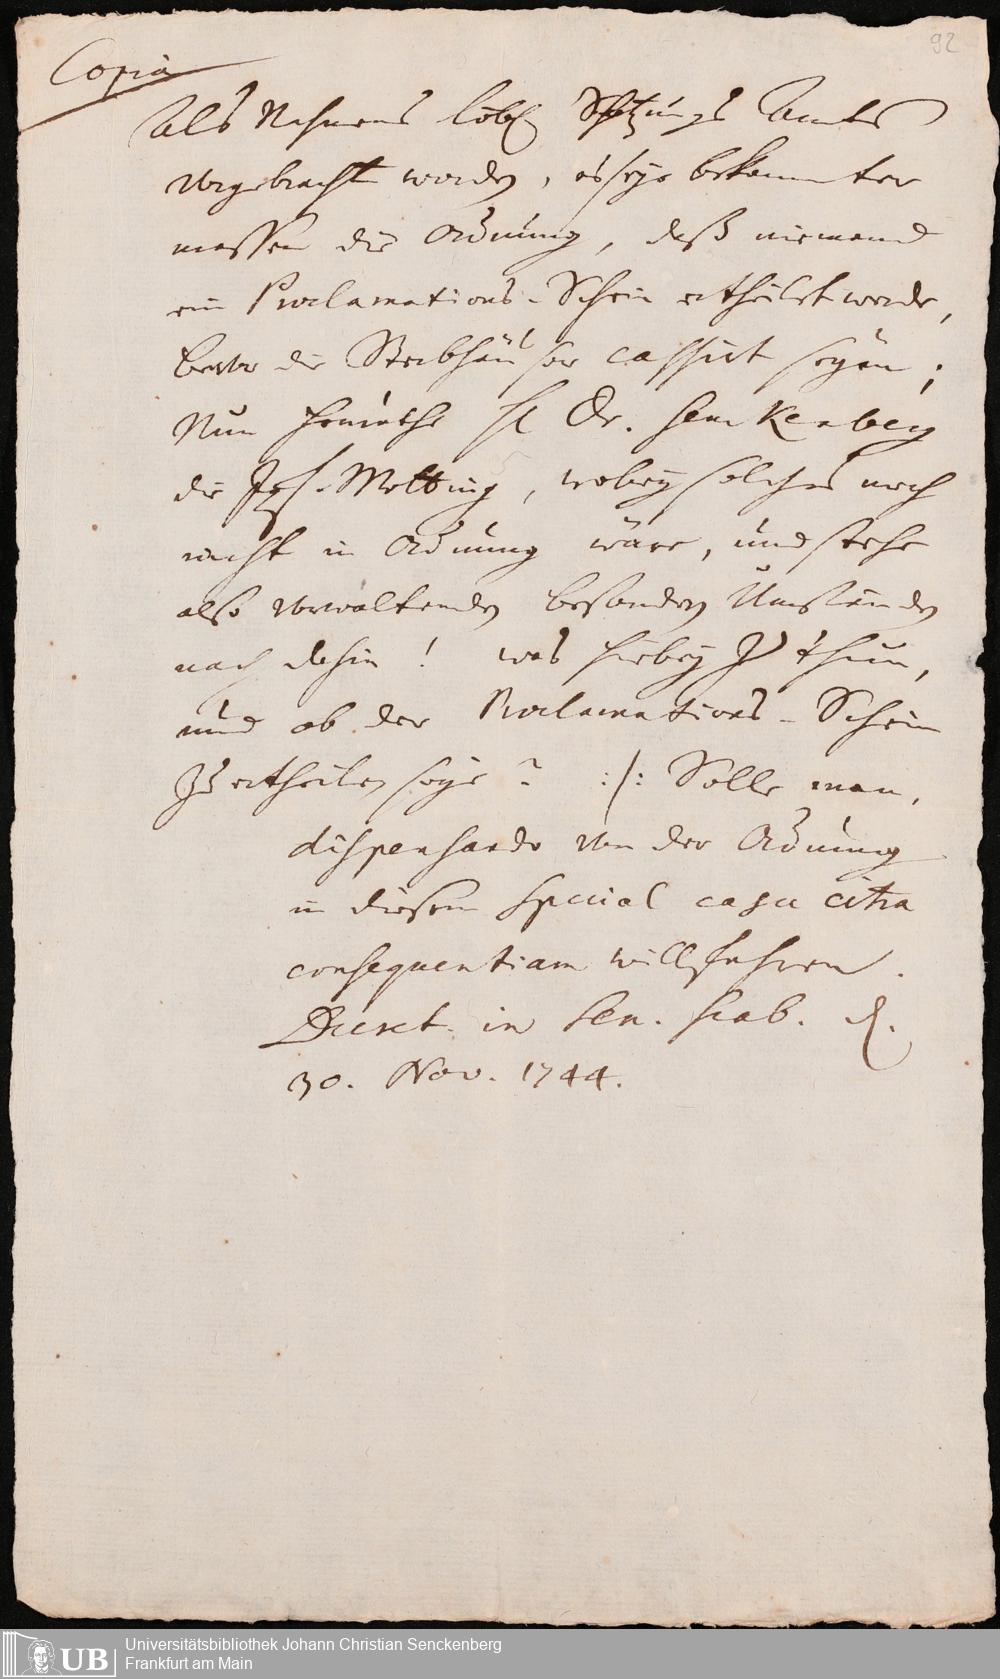 92
Copia
Als Nahmens löbl. Schatzungs Amts
vorgebracht worden, es seye bekannter
massen die Ordnung, daß niemand
ein Proclamations-Schein ertheilet werde,
bevor die Sterbhäuser cassirt seyen;
Nun heurathe H. Dr. Senckenberg
die Jgfr. Mettting, wobey solches noch
nicht in Ordnung wäre, und stehe
also vorwaltenden besondern Umständen
nach dahin! was hierbey zu thun,
und ob der Proclamations-Schein
zu ertheilen seye? :/: Solle man,
dispensando von der Ordnung
in diesem special casu citra
consequentiam willfahren.
Decret. in Sen. Scab. d.
30. Nov. 1744.
UB
Universitätsbibliothek Johann Christian Senckenberg
Frankfurt am Main